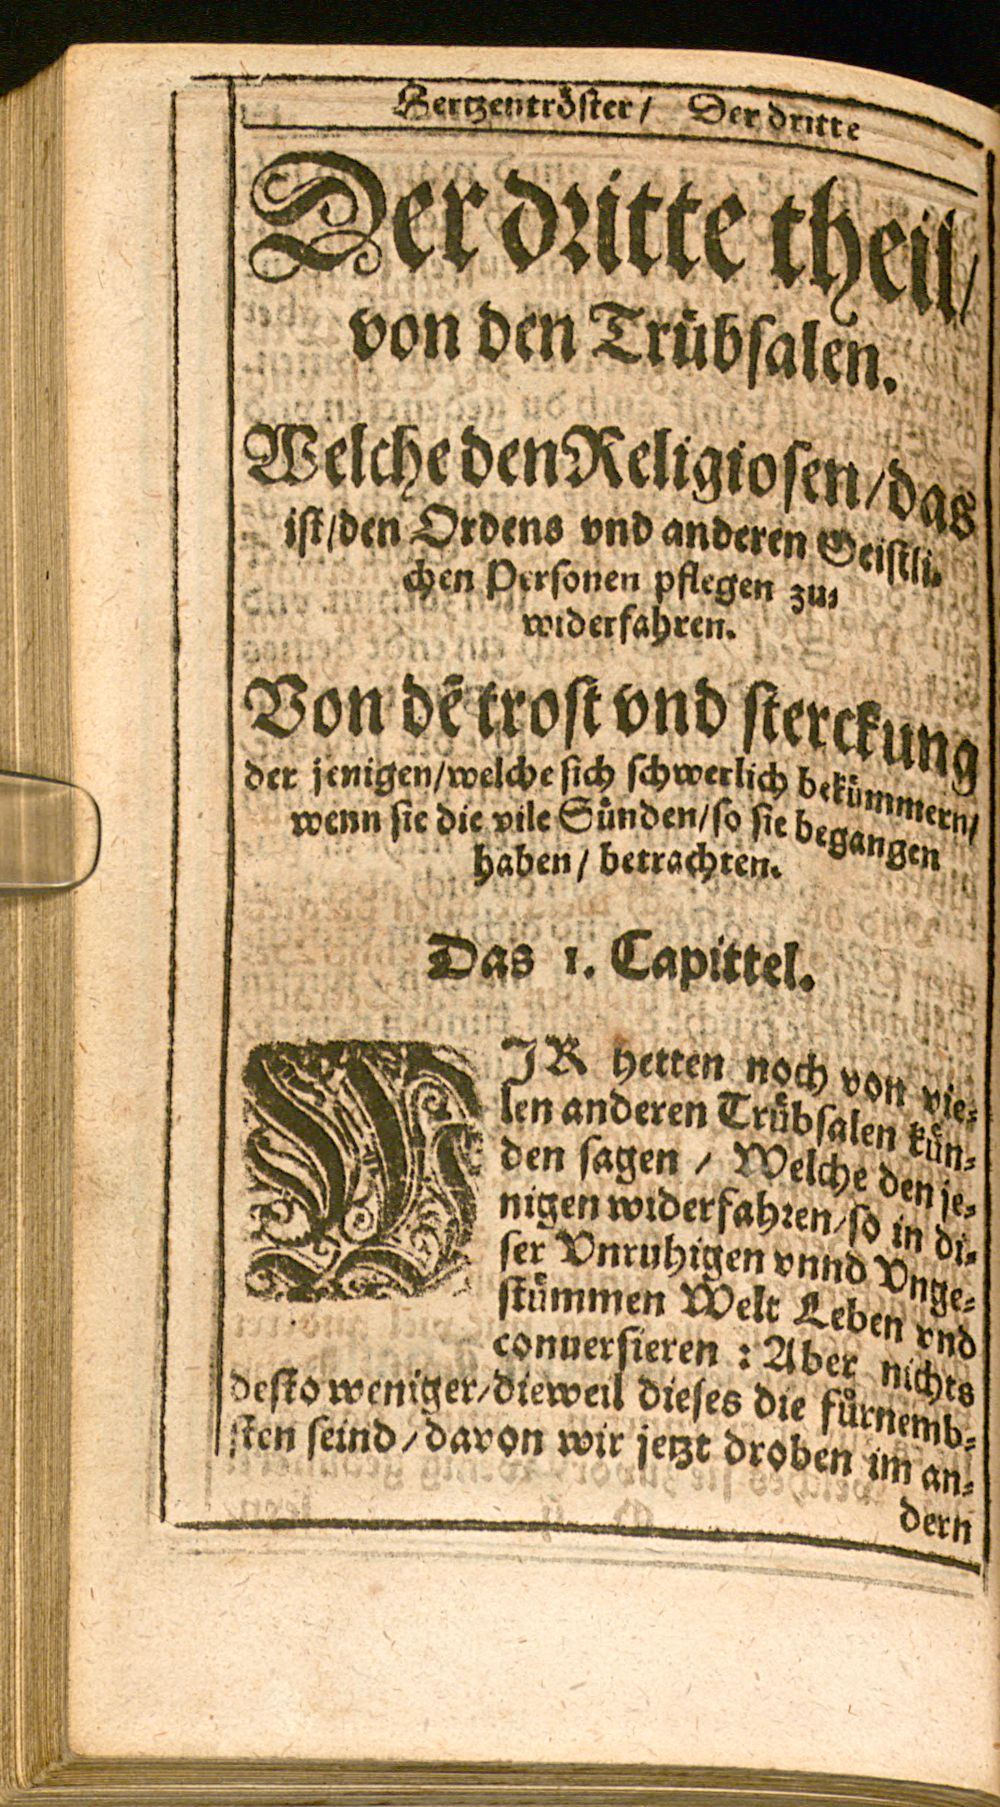 Hertzentröster / Der dritte
Der dritte theil /
von den Trübsalen.
Welche den Religiosen / das
ist / den Ordens vnd anderen Geistli-
chen Personen pflegen zu-
widerfahren.
Von dē trost vnd sterckung
der jenigen / welche sich schwerlich bekümmern /
wenn sie die vile Sünden / so sie begangen
haben / betrachten.
Das 1. Capittel.
WJR hetten noch von vie-
len anderen Trübsalen kün-
den sagen / Welche den je-
nigen widerfahren / so in di-
ser Vnruhigen vnnd Vnge-
stümmen Welt Leben vnd
conuersieren : Aber nichts
desto weniger / dieweil dieses die fürnemb-
sten seind / davon wir jetzt droben im an-
dern